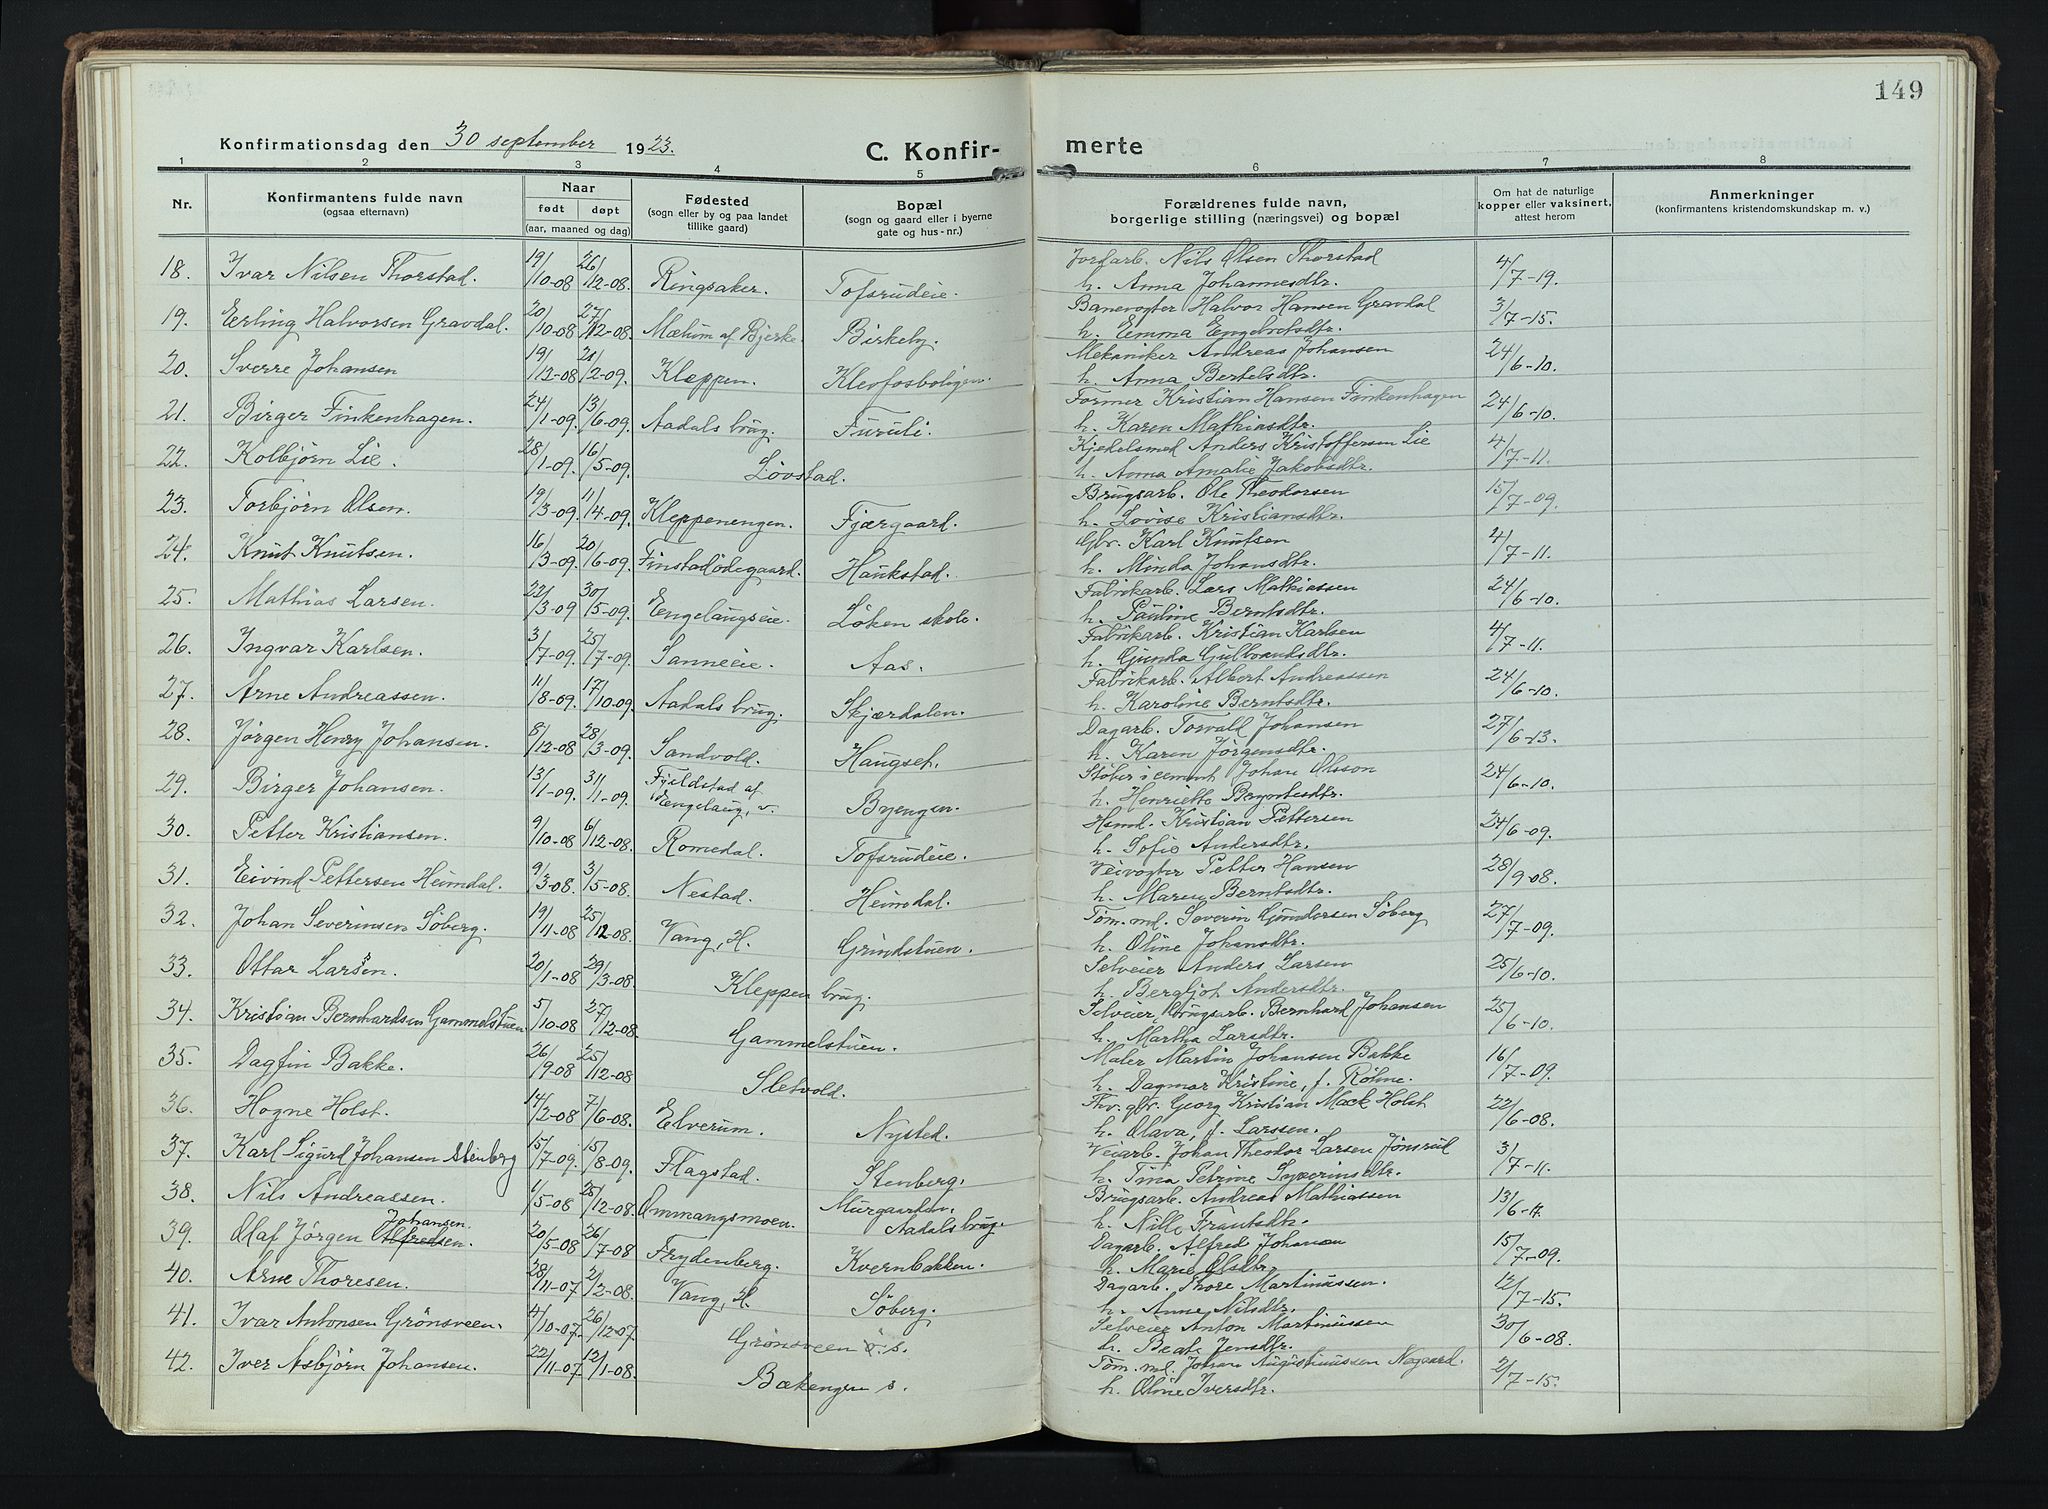 149
Konfirmationsdag den 30 september 1923.
C. Konfir- merte
1 2 3 4 5 6 7 8
Nr.
Konfirmantens fulde navn
(ogsaa efternavn)
Naar
født døpt
(aar, maaned og dag)
Fødested
(sogn eller by og paa landet
tillike gaard)
Bopæl
(sogn og gaard eller i byerne
gate og hus-nr.)
Forældrenes fulde navn,
borgerlige stilling (næringsvei) og bopæl
Om hat de naturlige
kopper eller vaksinert,
attest herom
Anmerkninger
(konfirmantens kristendomskundskap m. v.)
18. Ivar Nilsen Thorstad. 19/10-08 26/12-08. Ringsaker. Tofsrudeie. Jordarb. Nils Olsen Thorstad 4/7-19.
h. Anna Johannesdtr.
19. Erling Halvorsen Gravdal. 20/10-08 27/12-08. Mælum af Bjerke. Birkeby. Banevogter Halvor Hansen Gravdal 3/7-15.
h. Emma Engebretsdtr.
20. Sverre Johansen 19/12-08 21/2-09. Kleppen. Klevfosboligen. Mekaniker Andreas Johansen 24/6-10.
h. Anna Bertelsdtr.
21. Birger Finkenhagen. 24/1-09. 13/6-09. Aadals brug. Furuli. Former Kristian Hansen Finkenhagen 24/6-10.
h. Karen Mathiasdtr.
22. Kolbjørn Lie. 28/1-09. 16/5-09. Løvstad. Kjedelsmed Anders Kristoffersen Lie 4/7-11.
h. Anna Amalie Jakobsdtr.
23. Torbjørn Olsen. 19/3-09. 11/14-09. Kleppenengen. Fjærgaard. Brugsarb. Ole Theodorsen 15/7-09.
h. Lovise Kristiansdtr.
24. Knut Knutsen. 16/3-09. 20/6-09. Finstadødegaard. Haukstad. Gbr. Karl Knutsen 4/7-11.
h. Minda Johansdtr.
25. Mathias Larsen. 22/3-09 30/5-09. Engelaugseie. Løken skole. Fabrikarb. Lars Mathiassen 24/6-10.
h. Pauline Berntsdtr.
26. Ingvar Karlsen. 3/7-09. 25/7-09. Sanneeie. Aas. Fabrikarb. Kristian Karlsen 4/7-11.
h. Gunda Gulbrandsdtr.
27. Arne Andreassen. 11/8-09. 17/10-09. Aadals brug. Skjærdalen. Fabrikarb. Albert Andreassen 24/6-10.
h. Karoline Berntsdtr.
28. Jørgen Henry Johansen. 8/12-08 28/3-09. Sandvold. Haugset. Dagarb. Torvald Johansen 27/6-13.
h. Karen Jørgensdtr.
29. Birger Johansen. 13/1-09. 31/1-09. Fjeldstad af Engelaug, v. Byengen. Støber i cement Johan Olsson 24/6-10.
h. Henriette Berntesdtr.
30. Petter Kristiansen. 9/10-08 6/12-08. Romedal. Tofsrudeie. Hsmd. Kristian Pettersen 24/6-09.
h. Sofie Andersdtr.
31. Eivind Pettersen Heimdal. 9/3-08. 3/5-08. Nestad. Heimdal. Veivogter Petter Hansen 28/9-08.
h. Maren Berntsdtr.
32. Johan Severinsen Søberg. 19/11-08 25/12-08. Vang, H. Grindstuen. Tøm.md. Severin Gundersen Søberg 27/7-09.
h. Oline Johansdtr.
33. Ottar Larsen. 20/1-08 29/3-08. Kleppen brug. Selveier Anders Larsen 25/6-10.
h. Bergljot Andersdtr.
34. Kristian Bernhardsen Gammelstuen 5/10-08 27/12-08. Gammelstuen. Selveier, brugsarb. Bernhard Johansen 25/6-10.
h. Martha Larsdtr.
35. Dagfin Bakke. 26/9-08 25/12-08 Sletvold. Maler Martin Johansen Bakke 16/7-09.
h. Dagmar Kristine, f. Røhne.
36. Hogne Holst. 14/2-08 7/6-08. Elverum. Nysted. Fhv. gbr. Georg Kristian Mack Holst 22/6-08.
h. Olava, f. Larssen.
37. Karl Sigurd Johansen Stenberg 15/7-09. 15/8-09. Flagstad. Stenberg. Veiarb. Johan Theodor Larsen Jønsrud 3/7-11.
h. Tina Petrine Syverinsdtr.
38. Nils Andreassen. 1/5-08 25/12-08. Ommangsmoen. Murgaarden, Aadals brug. Brugsarb. Andreas Mathiassen 13/6-11.
h. Nille Frantsdtr.
39. Olaf Jørgen Alfredsen. Johansen. 20/5-08 26/7-08 Frydenberg. Kvernbakken. Dagarb. Alfred Johansen 15/7-09.
h. Marie Olsdtr.
40. Arne Thoresen. 28/11-07 2/2-08. Vang, H. Søberg. Dagarb. Thore Martinussen. 12/7-15.
h. Anne Nilsdtr.
41. Ivar Antonsen Grønsveen. 4/10-07. 26/12-07. Grønsveen s. Selveier Anton Martinussen 30/6-08.
h. Beate Jensdtr.
42. Iver Asbjørn Johansen. 22/11-07. 12/1-08. Bækengen s. Tøm.md. Johan Augustinussen Nøgaard. 2/7-15.
h. Oline Iversdtr.